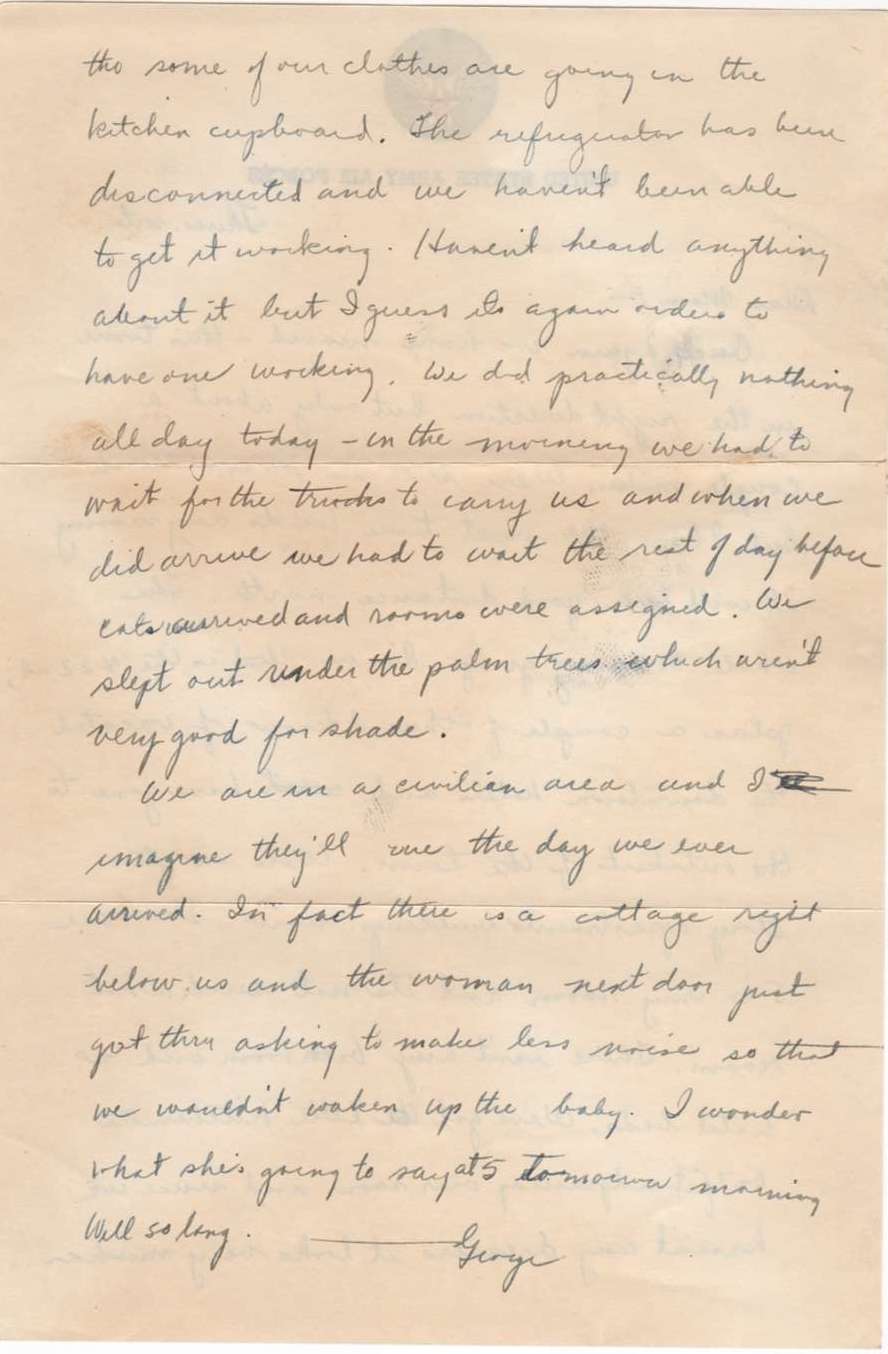 tho some of our clothes are going in the
kitchen cupboard. The refriguator has been
disconnected and we haven't been able
to get it working. Haven't heard anything
about it but I guess its again orders to
have one working. We did practically nothing
all day today - in the morning we had to
wait for the trucks to carry us and when we
did arrive we had to wait the rest of day before
cots arrived and rooms were assigned. We
slept out under the palm trees which aren't
very good for shade.
We are in a civilian area and I
imagine they'll rue the day we ever
arrived. In fact there is a cottage right
below us and the woman next door just
got thru asking to make less noise so that
we wouldn't waken up the baby. I wonder
what she's going to say at 5 tomorrow morning
Well so long.
George